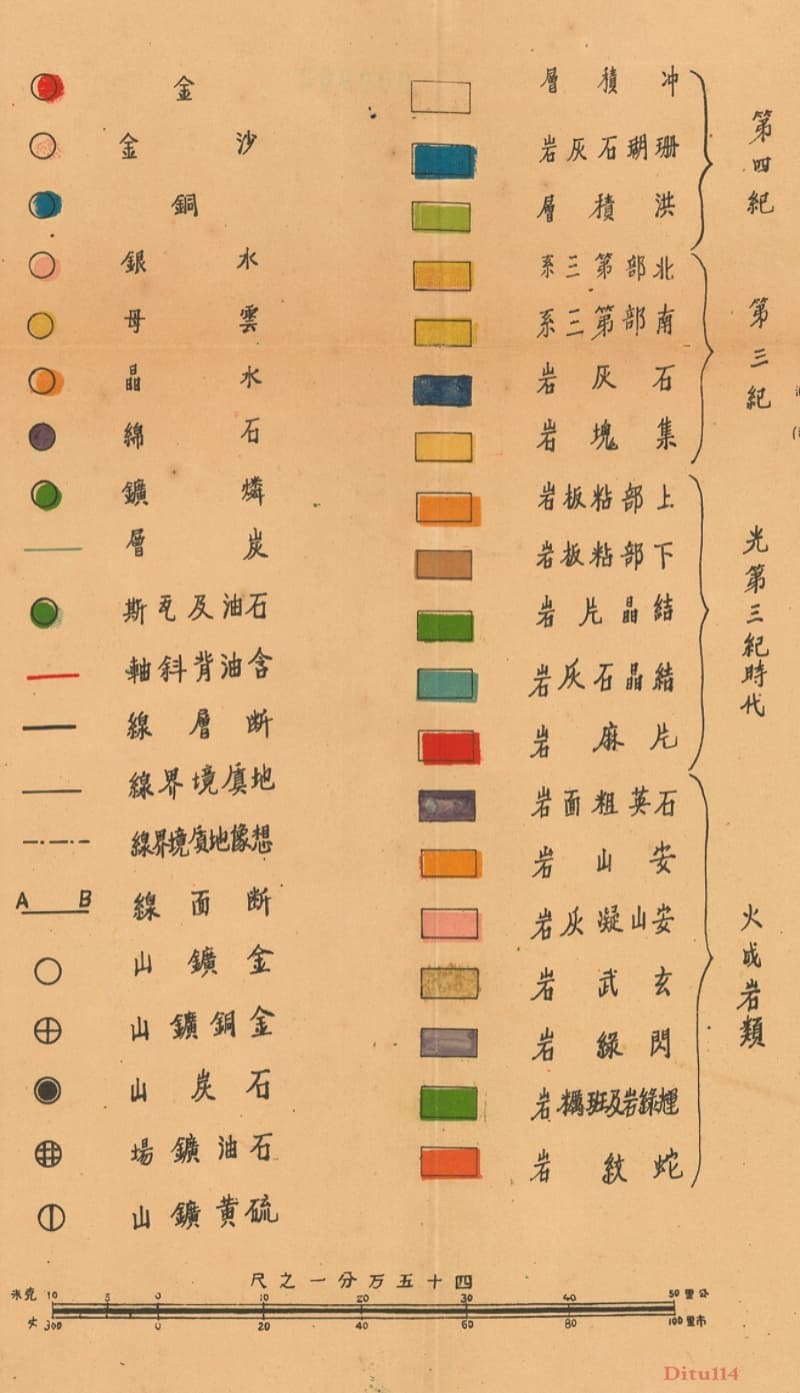 第四紀
冲積層
珊瑚石灰岩
洪積層
第三紀
北部第三系
南部第三系
石灰岩
集塊岩
光第三紀時代
上部粘板岩
下部粘板岩
結晶片岩
結晶石灰岩
片麻岩
火成岩類
石英粗面岩
安山岩
安山凝灰岩
玄武岩
閃綠岩
煇綠岩及斑糲岩
蛇紋岩
金
沙金
銅
水銀
雲母
水晶
石綿
燐鑛
炭層
石油及瓦斯
含油背斜軸
断層線
地質境界線
想像地質境界線
A B 断面線
金鑛山
金銅鑛山
石炭山
石油鑛場
硫黄鑛山
四十五万分一之尺
10 5 0 10 20 30 40 50 公里
300 0 20 40 60 80 100 市里
Ditu114